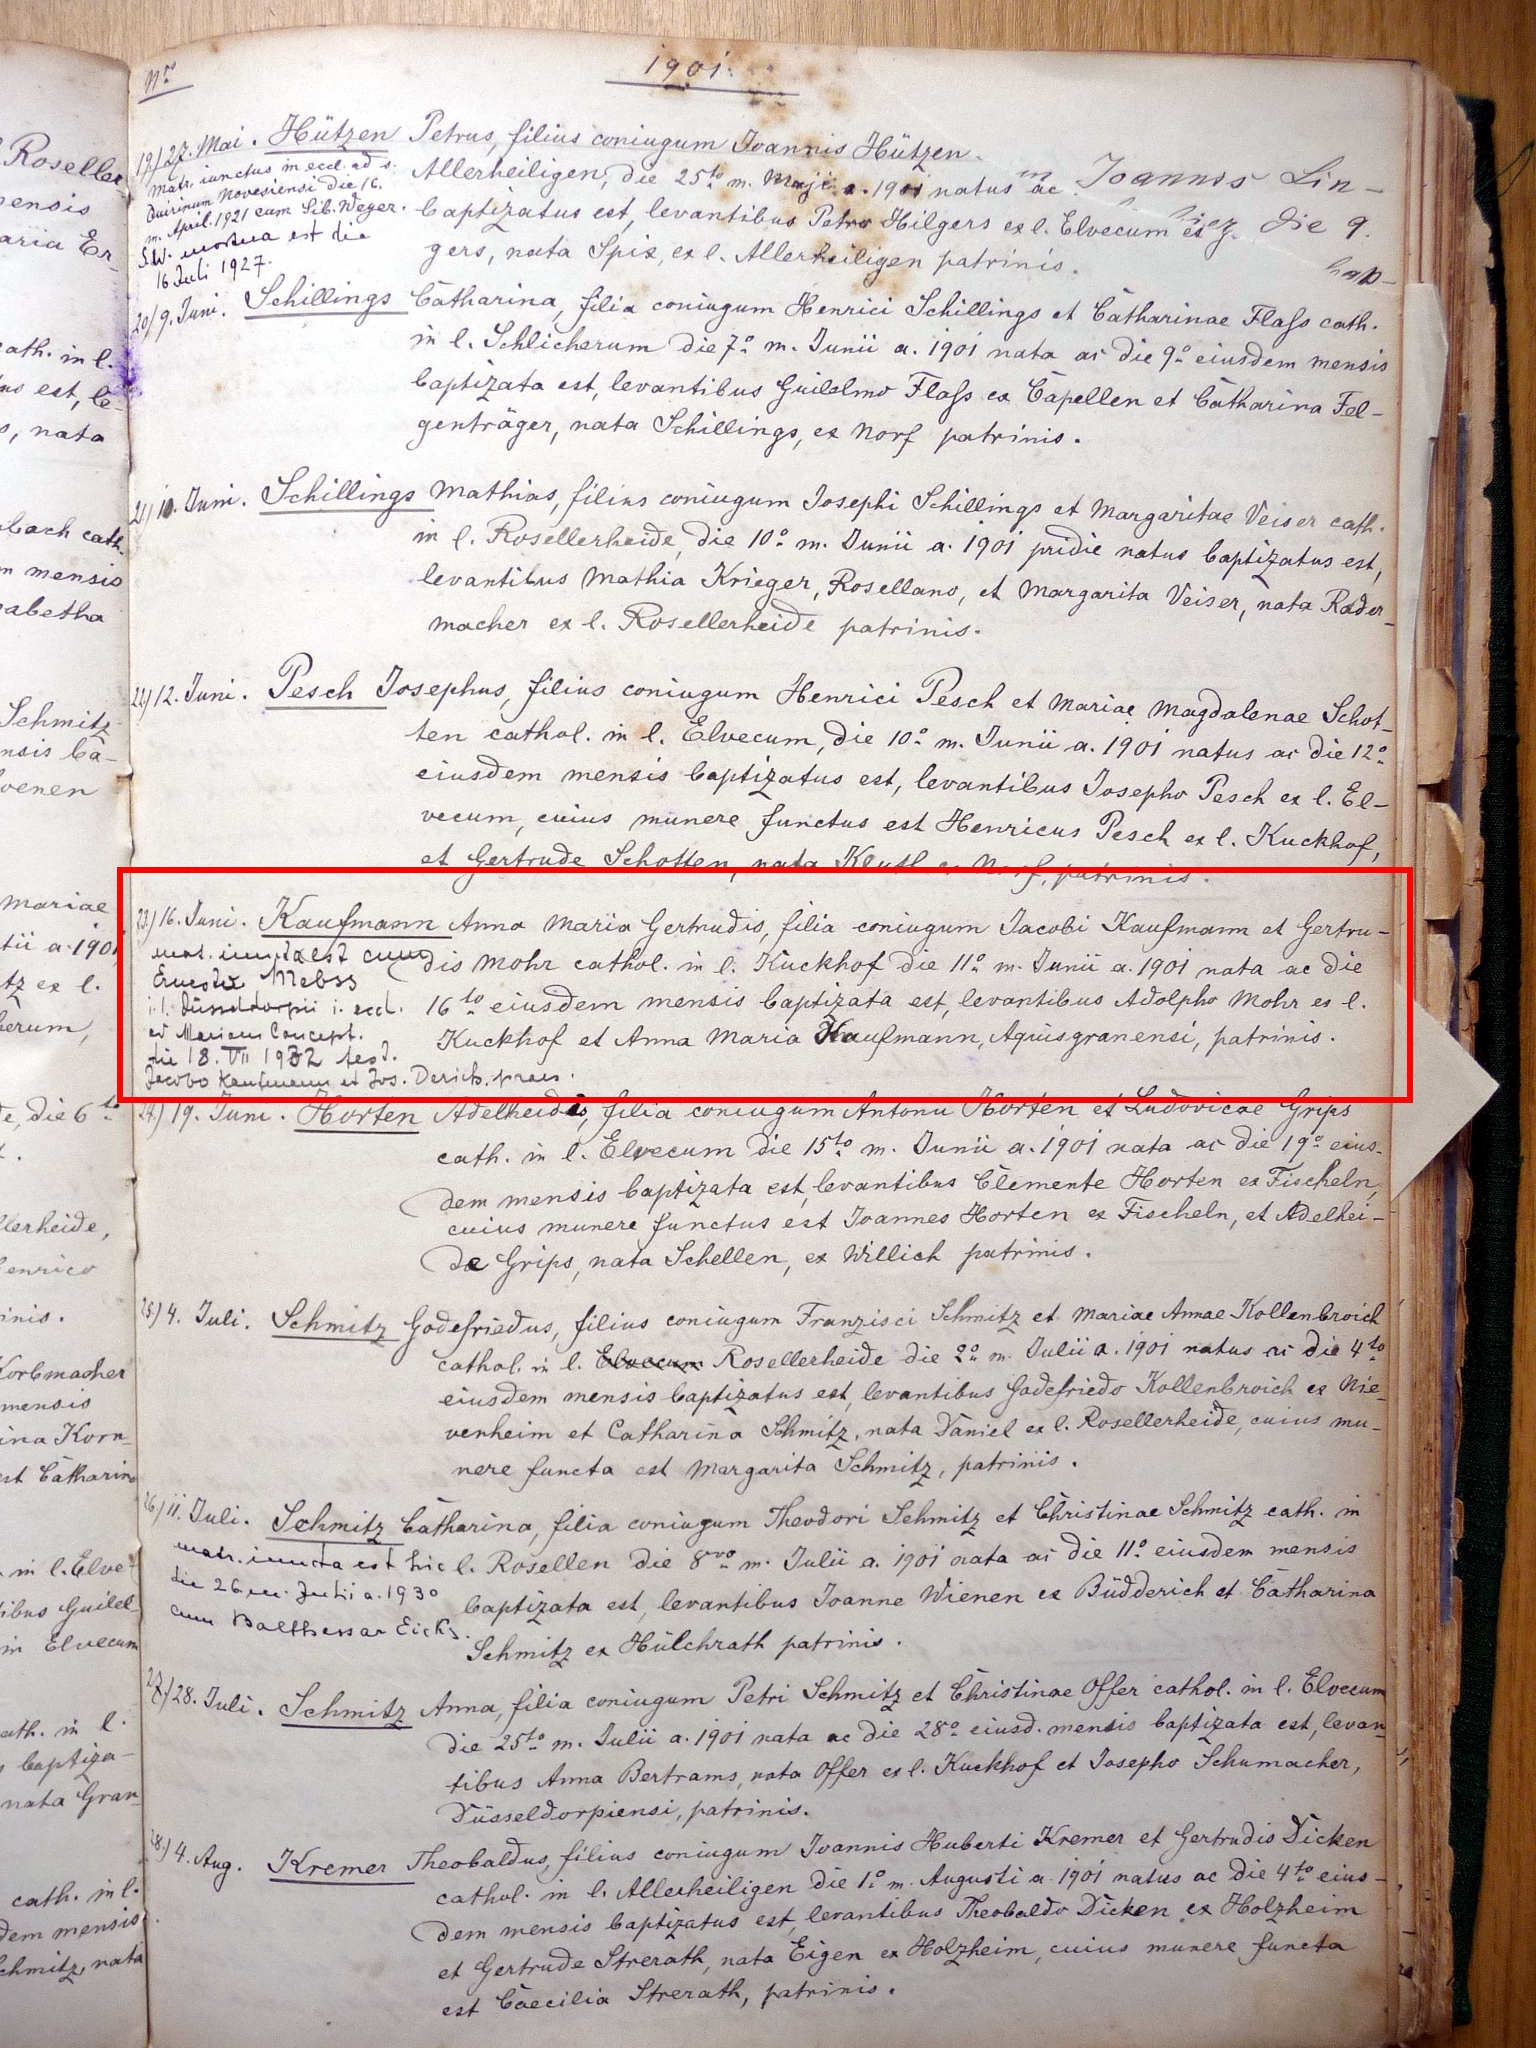 Nro 1901.
19) 27. Mai. Hützen Petrus, filius coniugum Joannis Hützen
matr. iunctus in eccl. ad s. Allerheiligen, die 25to m. Maji a. 1901 natus ac Joannes Lin-
Quirinum Novesiensi die 16. baptizatus est, levantibus Petro Hilgers ex l. Elvecum die 9.
m. April. 1921 cum Sib. Weger. gers, nata Spix, ex l. Allerheiligen patrinis. bap-
mortua est die
16 Juli 1927.
20) 9. Juni. Schillings Catharina, filia coniugum Henrici Schillings et Catharinae Flass cath.
in l. Schlicherum die 7o m. Junii a. 1901 nata ac die 9o eiusdem mensis
baptizata est, levantibus Guilelmo Flass ex Capellen et Catharina Fel-
genträger, nata Schillings, ex Norf patrinis.
21) 10. Juni. Schillings Mathias, filius coniugum Josephi Schillings et Margaritae Veiser cath.
in l. Rosellerheide, die 10o m. Junii a. 1901 pridie natus baptizatus est,
levantibus Mathia Krieger, Rosellano, et Margarita Veiser, nata Rader-
macher ex l. Rosellerheide patrinis.
22) 12. Juni. Pesch Josephus, filius coniugum Henrici Pesch et Mariae Magdalenae Schot-
ten cathol. in l. Elvecum, die 10o m. Junii a. 1901 natus ac die 12o
eiusdem mensis baptizatus est, levantibus Josepho Pesch ex l. El-
vecum, cuius munere functus est Henricus Pesch ex l. Kuckhof,
et Gertrude Schotten, nata ex Norf, patrinis.
23) 16. Juni. Kaufmann Anna Maria Gertrudis, filia coniugum Jacobi Kaufmann et Gertru-
mat. iuncta est cum dis Mohr cathol. in l. Kuckhof die 11o m. Junii a. 1901 nata ac die
Ernesto Mebss 16to eiusdem mensis baptizata est, levantibus Adolpho Mohr ex l.
i. l. Düsseldorpii i. eccl. Kuckhof et Anna Maria Kaufmann, Aquisgranensi, patrinis.
ad Mariam Concept.
die 18. VII 1932 test.
Jacobo Kaufmann et Jos. Derich. praes.
24) 19. Juni. Horten Adelheidis, filia coniugum Antonii Horten et Ludovicae Grips
cath. in l. Elvecum die 15to m. Junii a. 1901 nata ac die 19o eius-
dem mensis baptizata est, levantibus Clemente Horten ex Fischeln,
cuius munere functus est Joannes Horten ex Fischeln, et Adelhei-
de Grips, nata Schellen, ex Willich patrinis.
25) 4. Juli. Schmitz Godefriedus, filius coniugum Franzisci Schmitz et Mariae Annae Kollenbroich
cathol. in l. Elvecum Rosellerheide die 2o m. Julii a. 1901 natus ac die 4to
eiusdem mensis baptizatus est, levantibus Godefriedo Kollenbroich ex Nie-
venheim et Catharina Schmitz, nata Daniel ex l. Rosellerheide, cuius mu-
nere functa est Margarita Schmitz, patrinis.
26) 11. Juli. Schmitz Catharina, filia coniugum Theodori Schmitz et Christinae Schmitz cath. in
matr. iuncta est hic l. Rosellen die 8vo m. Julii a. 1901 nata ac die 11o eiusdem mensis
die 26 m. Julii a. 1930 baptizata est, levantibus Joanne Wienen ex Büdderich et Catharina
cum Balthassar Eicks. Schmitz ex Hülchrath patrinis.
27) 28. Juli. Schmitz Anna, filia coniugum Petri Schmitz et Christinae Offer cathol. in l. Elvecum
die 25to m. Julii a. 1901 nata ac die 28o eiusd. mensis baptizata est, levan-
tibus Anna Bertrams, nata Offer ex l. Kuckhof et Josepho Schumacher,
Düsseldorpiensi, patrinis.
28) 4. Aug. Kremer Theobaldus, filius coniugum Joannis Huberti Kremer et Gertrudis Dicken
cathol. in l. Allerheiligen die 1o m. Augusti a. 1901 natus ac die 4to eius-
dem mensis baptizatus est, levantibus Theobaldo Dicken ex Holzheim
et Gertrude Strerath, nata Eigen ex Holzheim, cuius munere functa
est Caecilia Strerath, patrinis.